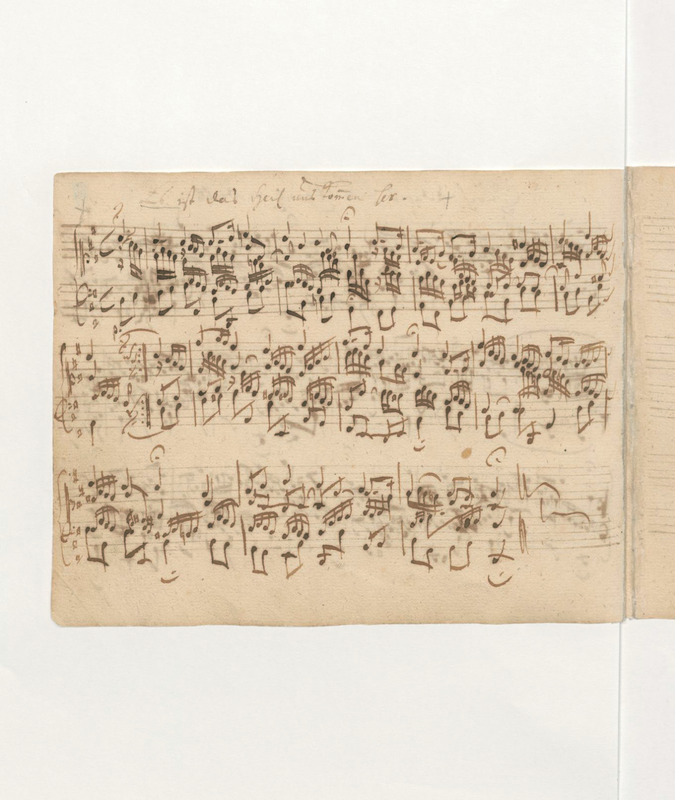 Es ist das Heil uns kom̄en her.